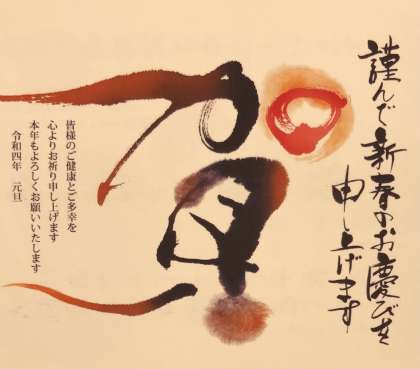 謹んで新春のお慶びを
申し上げます
賀
皆様のご健康とご多幸を
心よりお祈り申し上げます
本年もよろしくお願いいたします
令和四年 元旦